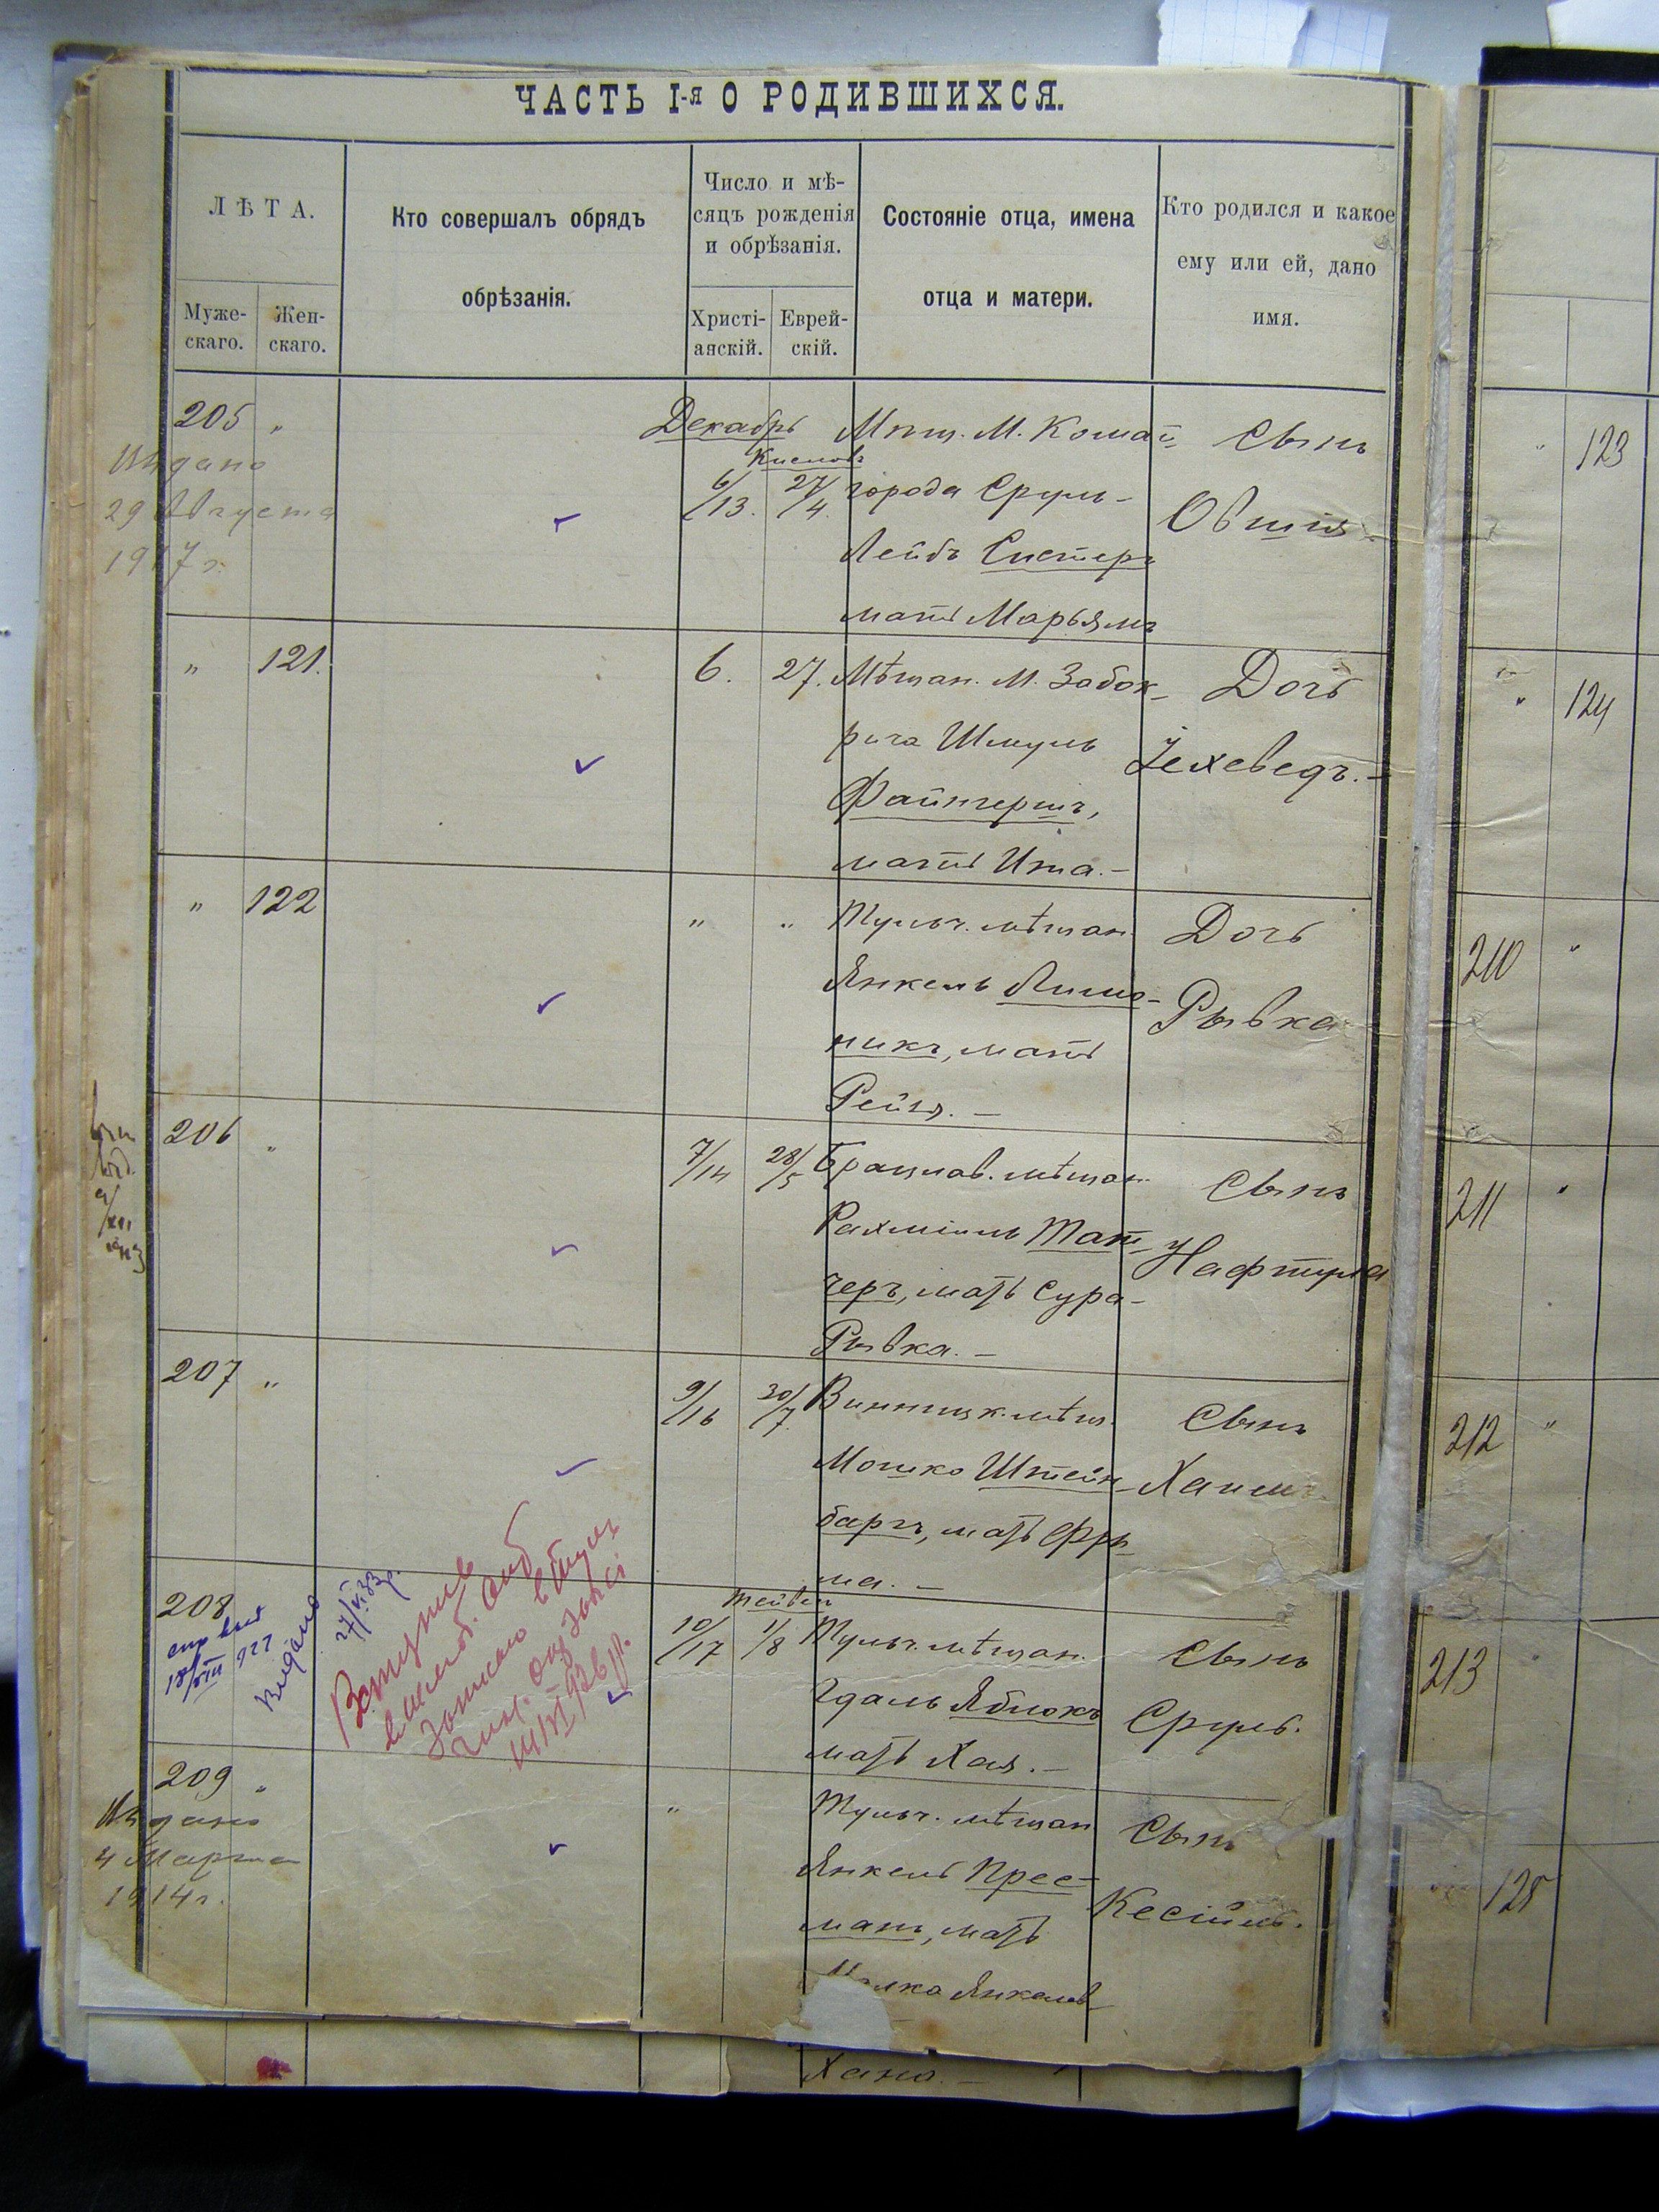 ЧАСТЬ I-я О РОДИВШИХСЯ.
ЛѢТА.
Муже-
скаго.
Жен-
скаго.
Кто совершалъ обрядъ
обрѣзанія.
Число и мѣ-
сяцъ рожденія
и обрѣзанія.
Христі-
анскій.
Еврей-
скій.
Состояніе отца, имена
отца и матери.
Кто родился и какое
ему или ей, дано
имя.
205 "
Выдано
29 Августа
1917 г.
Декабрь
Кислевъ
6/13. 27/4.
Мѣщ. М. Комай-
города Сруль-
Лейбъ Систеръ
мать Марьямъ
Сынъ
Овшія
" 121.
6. 27.
Мѣщан. М. Забок-
рича Шмуль
Файнгершъ,
мать Ита.-
Дочь
Іехеведъ.-
" 122
" "
Тульч. мѣщан.
Янкель Лимо-
никъ, мать
Рейзя.-
Дочь
Рывка
206 "
7/14 28/5
Брацлав. мѣщан.
Рахмиль Тат-
черъ, мать Сура-
Рывка.-
Сынъ
Нафтула
207 "
9/16 30/7.
Винницк. мѣщ.
Мошко Штейн-
баргъ, мать Фры-
ма.-
Сынъ
Хаимъ.
208
18/VIII 922
Видано
27/VI 33 р.
Тейвеъ
10/17 1/8
Тульч. мѣщан.
Гдаль Яблокъ
мать Хая.-
Сынъ
Сруль.
209 "
Выдано
4 Марта
1914 г.
"
Тульч. мѣщан
Янкель Прес-
манъ, мать
Янкелев
Хана.-
Сынъ
Кесіиль.
" 123
" 124
210 "
211 "
212 "
213
125